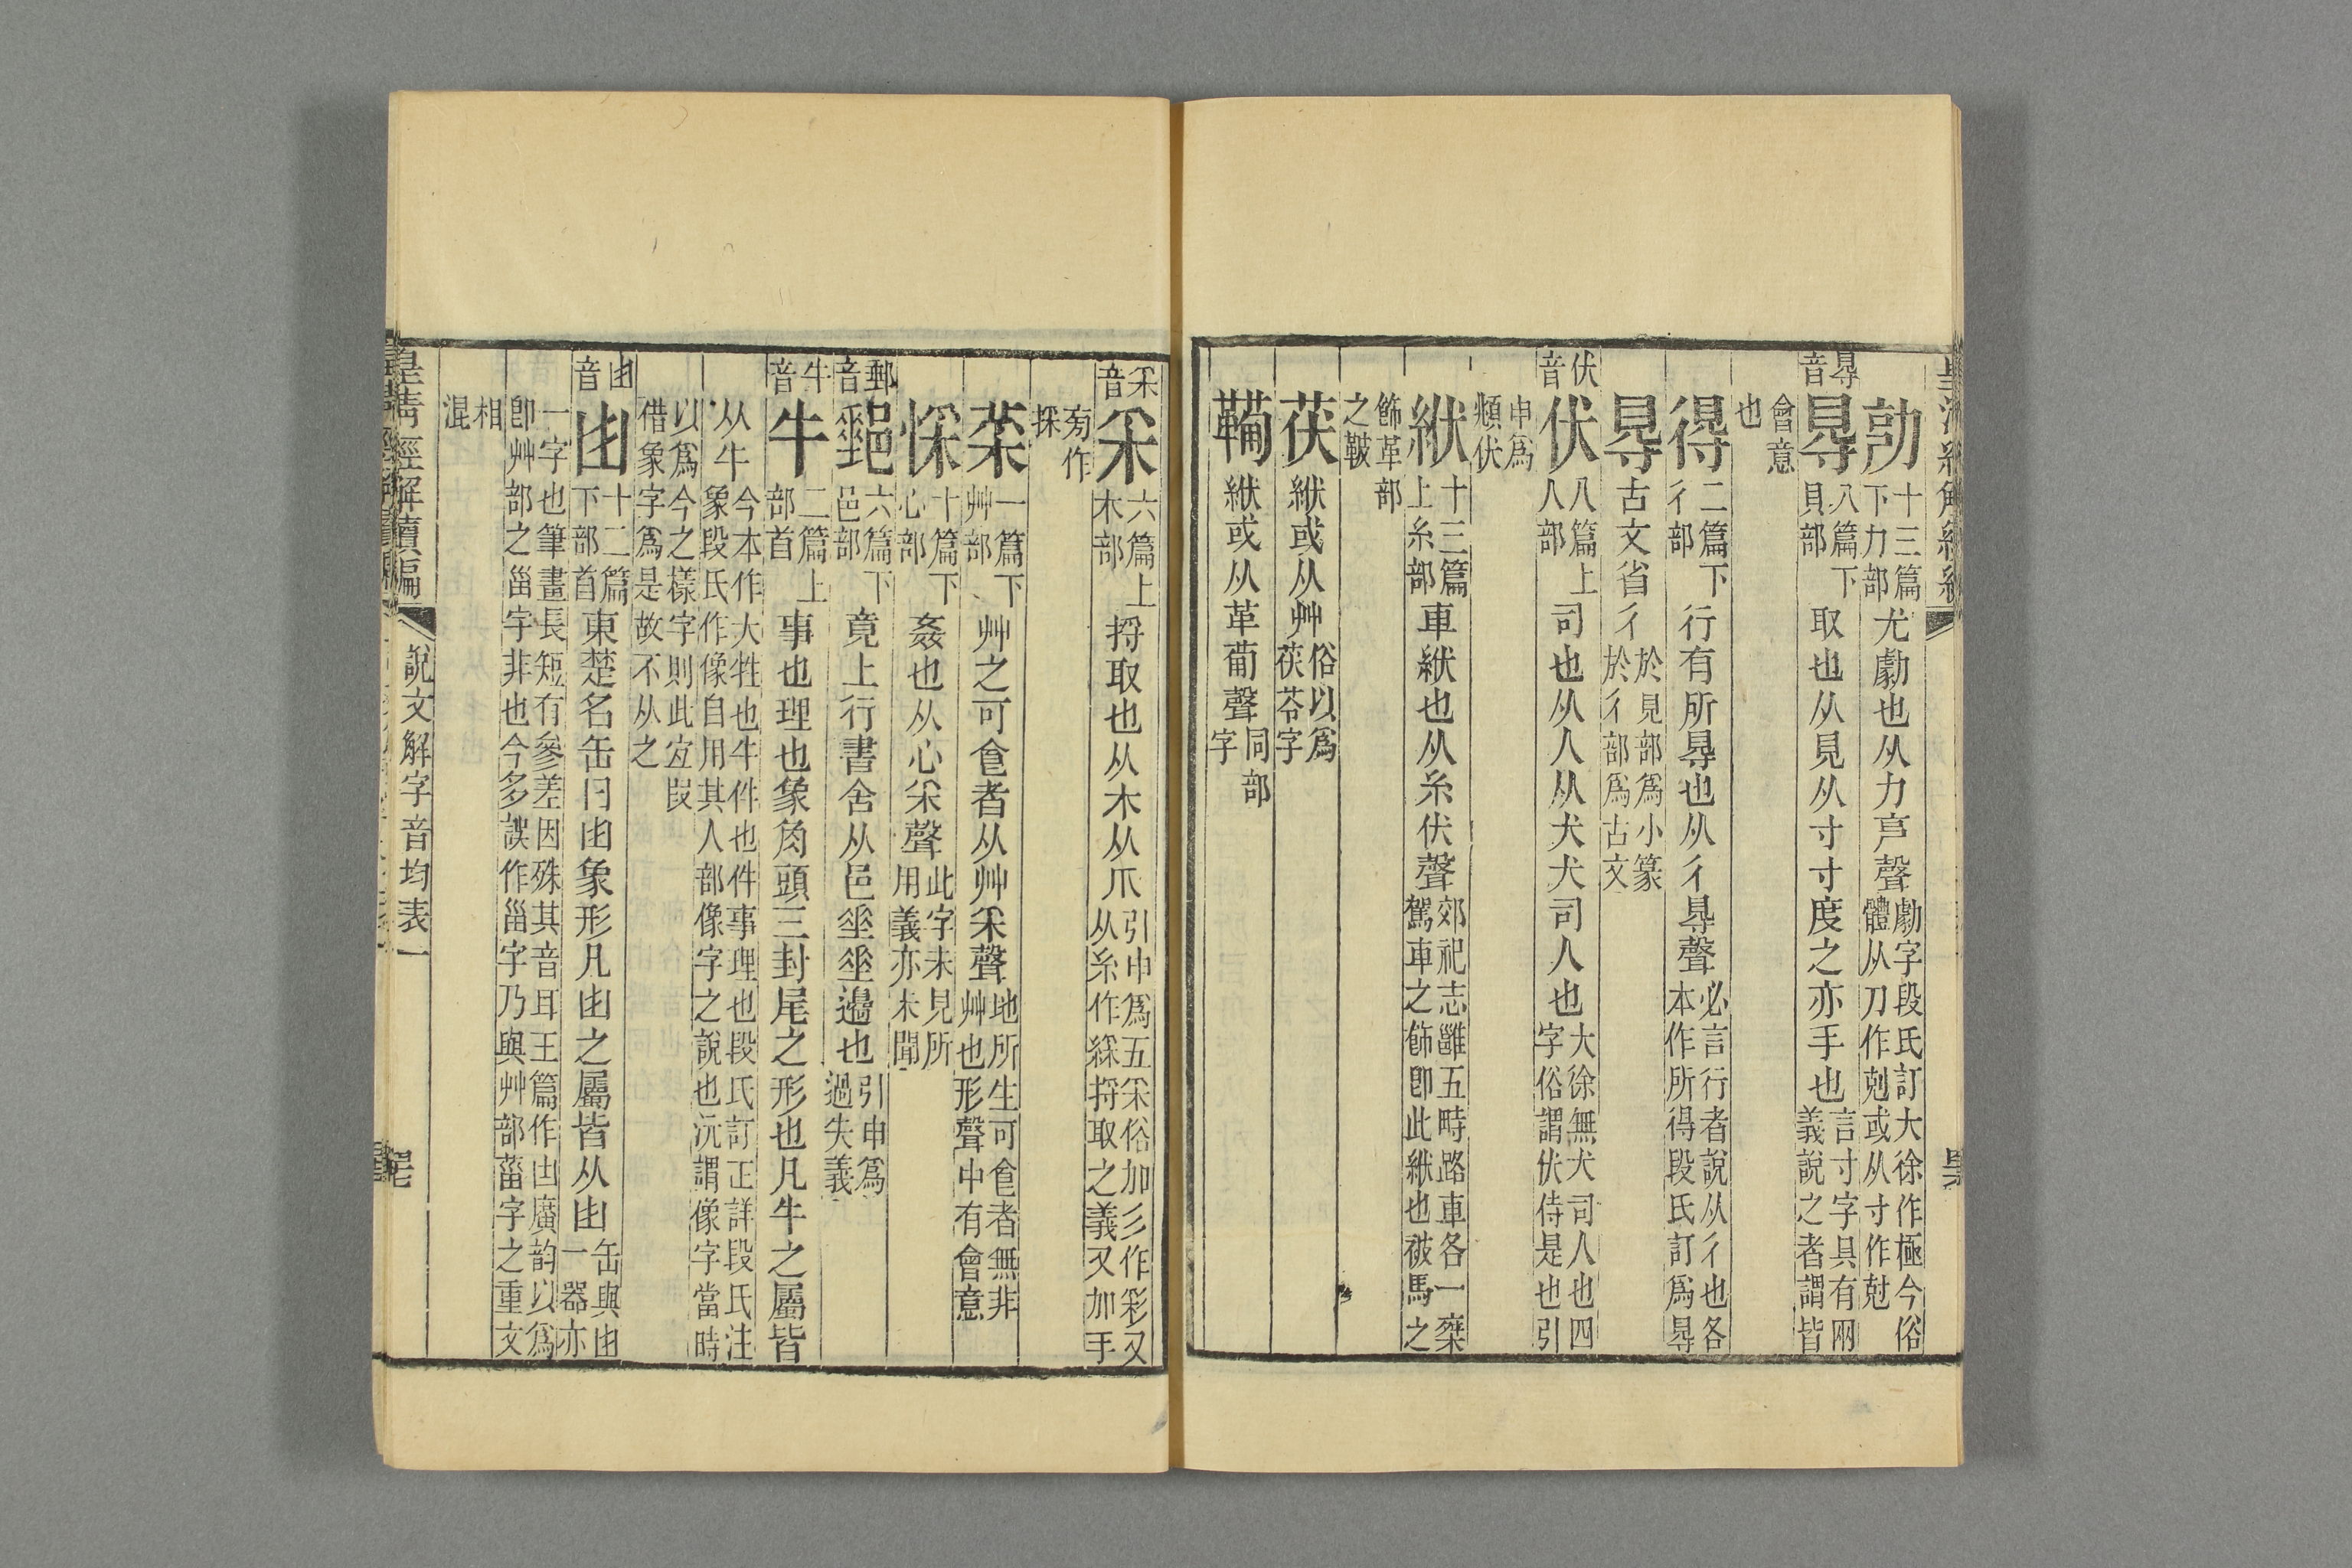 勀十三篇下力部尤勮也从力㐭聲勮字段氏訂大徐作極今俗體从刀作剋或从寸作尅
㝵音㝵八篇下見部取也从見从寸寸度之亦手也言寸字具有兩義說之者謂皆
會意也
得二篇下彳部行有所㝵也从彳㝵聲必言行者說从彳也各本作所得段氏訂爲㝵
㝵古文省彳於見部爲小篆於彳部爲古文
伏音伏八篇上人部司也从人从犬犬司人也大徐無犬司人也四字俗謂伏侍是也引
申爲頫伏
絥十三篇上糸部車絥也从糸伏聲郊祀志雝五畤路車各一椉駕車之飾卽此絥也被馬之
飾革部之鞁
茯絥或从艸俗以爲茯苓字
鞴絥或从革𤰇聲同部字
采音采六篇上木部捋取也从木从爪引申爲五采俗加彡作彩又从糸作綵捋取之義又加手
㫄作採
菜一篇下艸部艸之可食者从艸采聲地所生可食者無非艸也形聲中有會意
㥒十篇下心部姦也从心采聲此字未見所用義亦未聞
郵音郵六篇下邑部竟上行書舍从邑𡍮𡍮邊也引申爲過失義
牛音牛二篇上部首事也理也象角頭三封尾之形也凡牛之屬皆
从牛今本作大牲也牛件也件事理也段氏訂正詳段氏注象段氏作像自用其人部像字之說也沅謂像字當時
以爲今之樣字則此宐叚借象字爲是故不从之
甾音甾十二篇下部首東楚名缶曰甾象形凡甾之屬皆从甾缶與甾一器亦
一字也筆畫長短有參差因殊其音耳玉篇作甴廣韵以爲卽艸部之甾字非也今多誤作甾字乃與艸部菑字之重文
相混
皇淸經解續編
說文解字音均表一